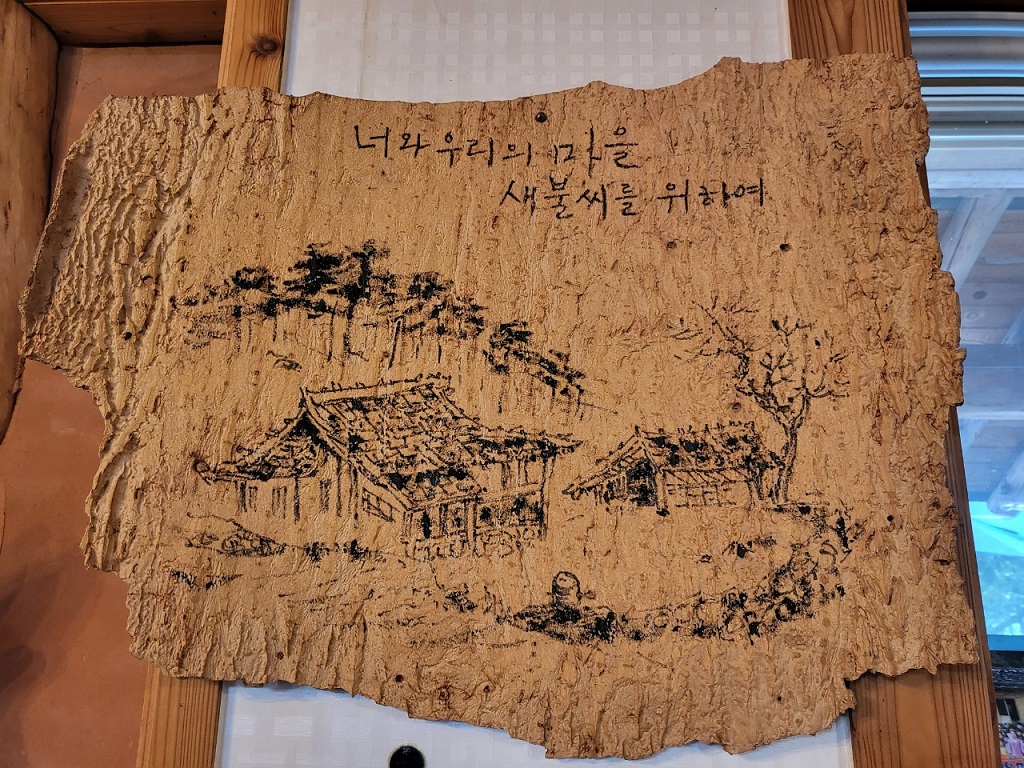 너와우리의 마을
새불씨를 위하여